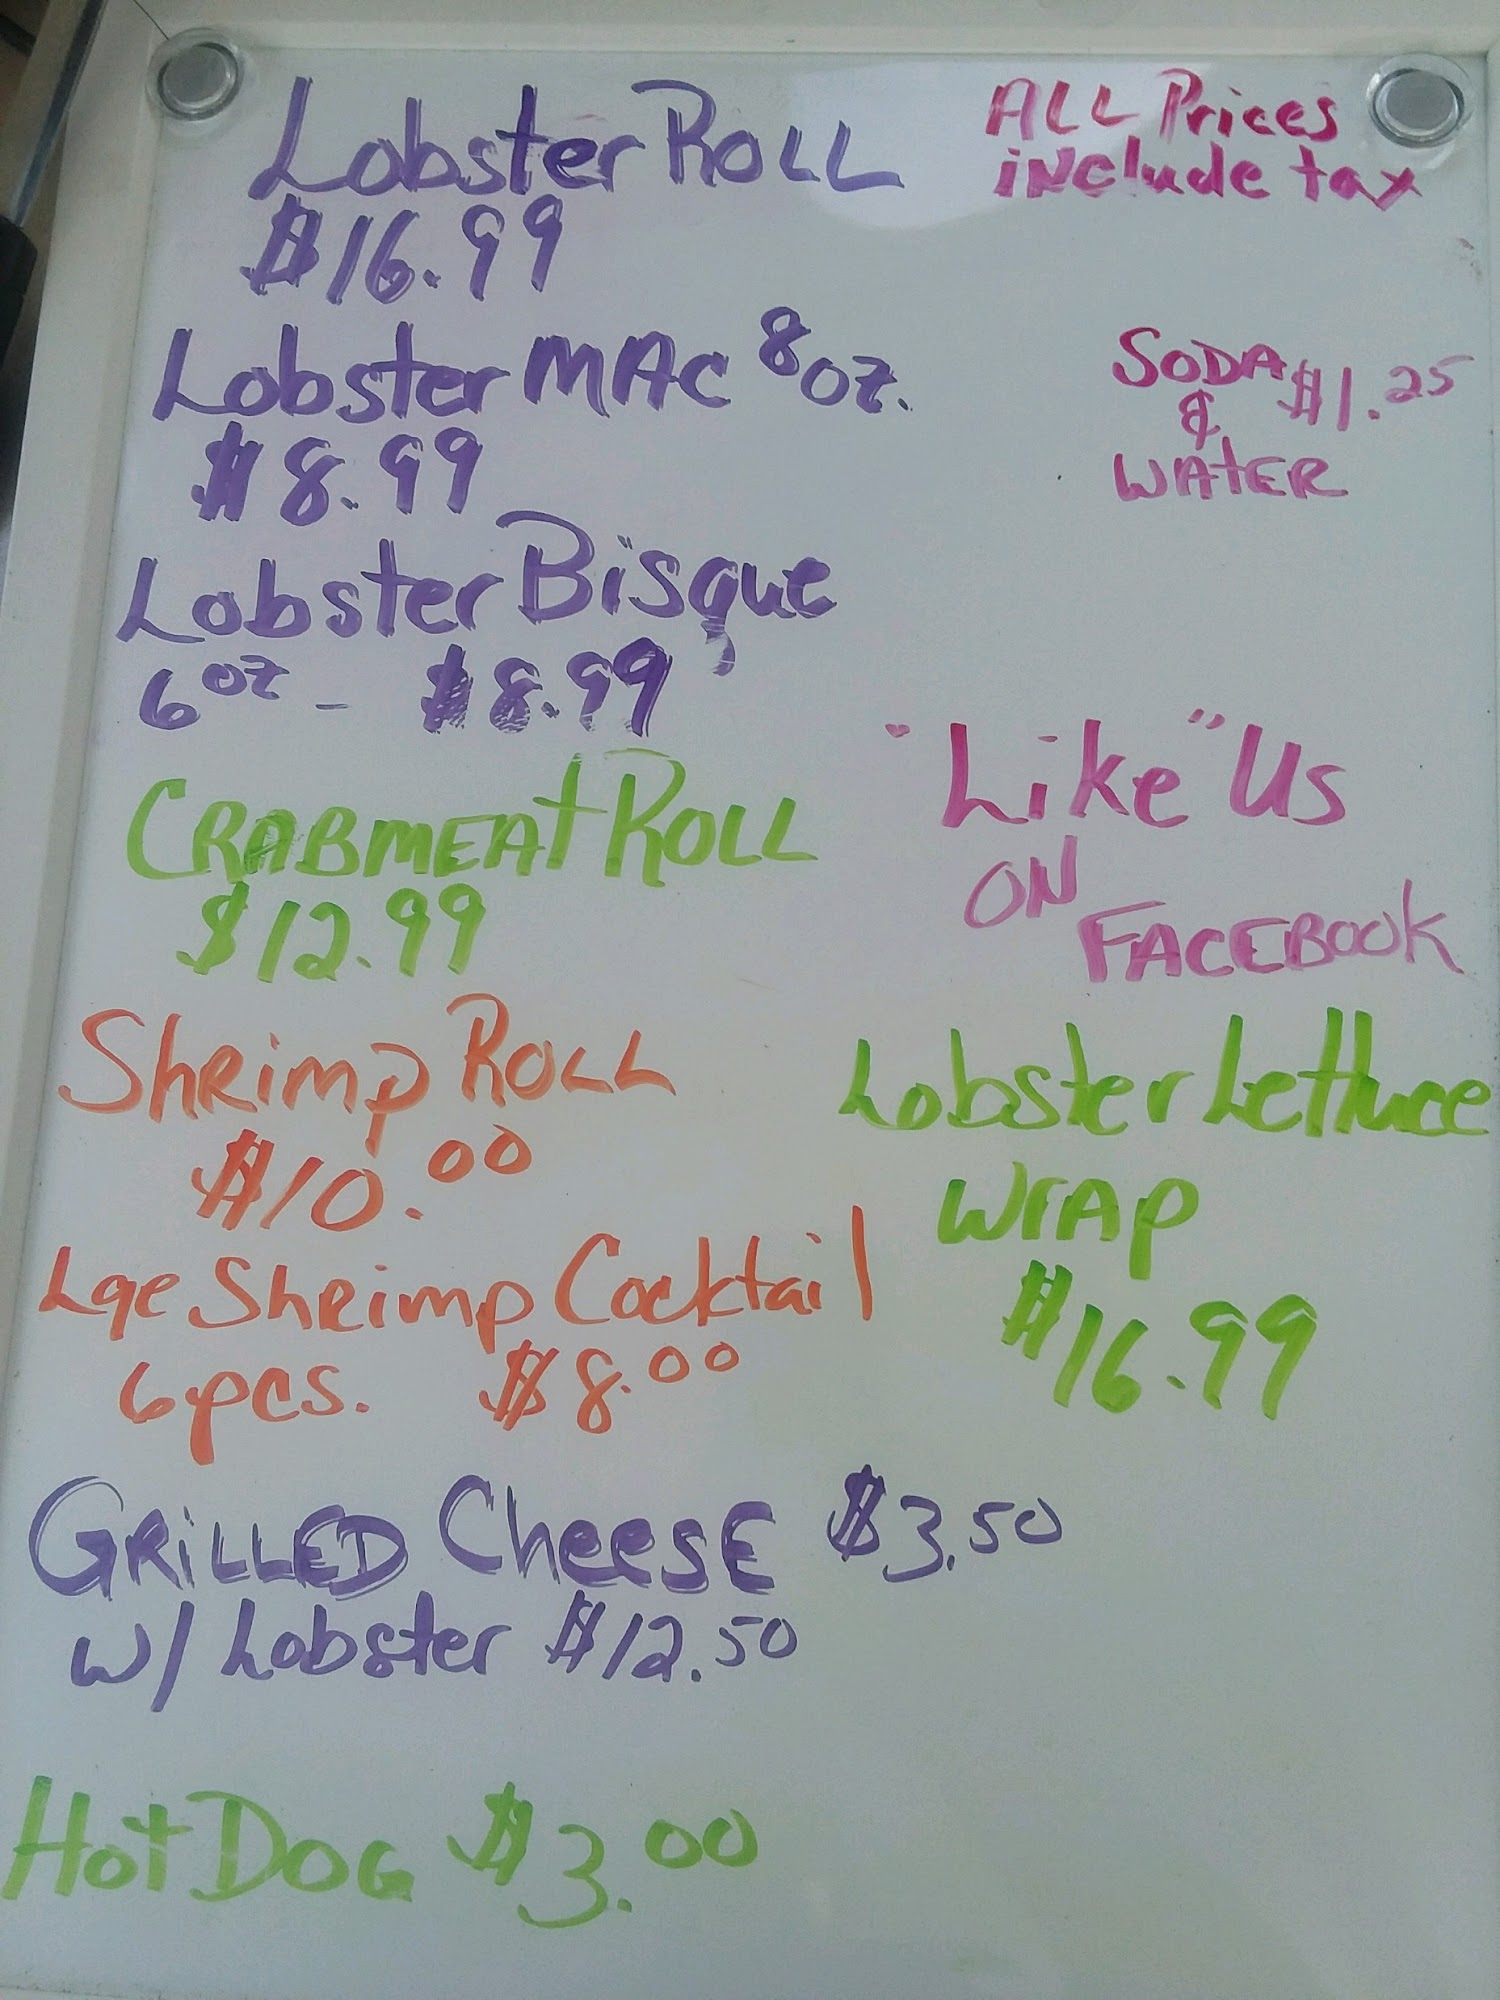 Lobster Roll
$16.99
Lobster MAC 8oz.
$8.99
Lobster Bisque
6oz - $8.99
CRABMEAt ROLL
$12.99
Shrimp ROLL
$10.00
Lge Shrimp Cocktail
6pcs. $8.00
GRILLED CheesE $3.50
w/ Lobster $12.50
Hot DOG $3.00
ALL Prices
iNclude tax
SODA $1.25
&
WAtER
"Like" Us
ON
FACEBOOK
Lobster Lettuce
WrAp
$16.99